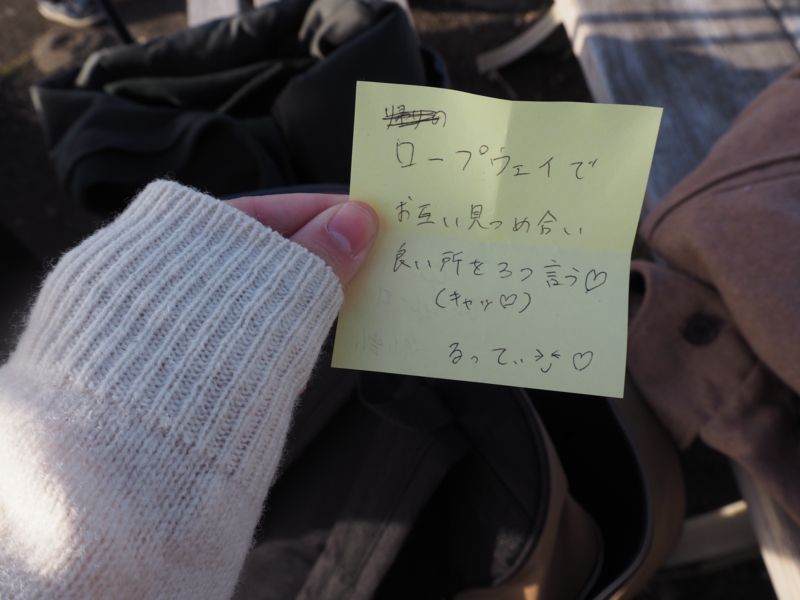 帰りの
ロープウェイで
お互い見つめ合い
良い所を3つ言う♡
(キャッ♡)
るってぃ♡